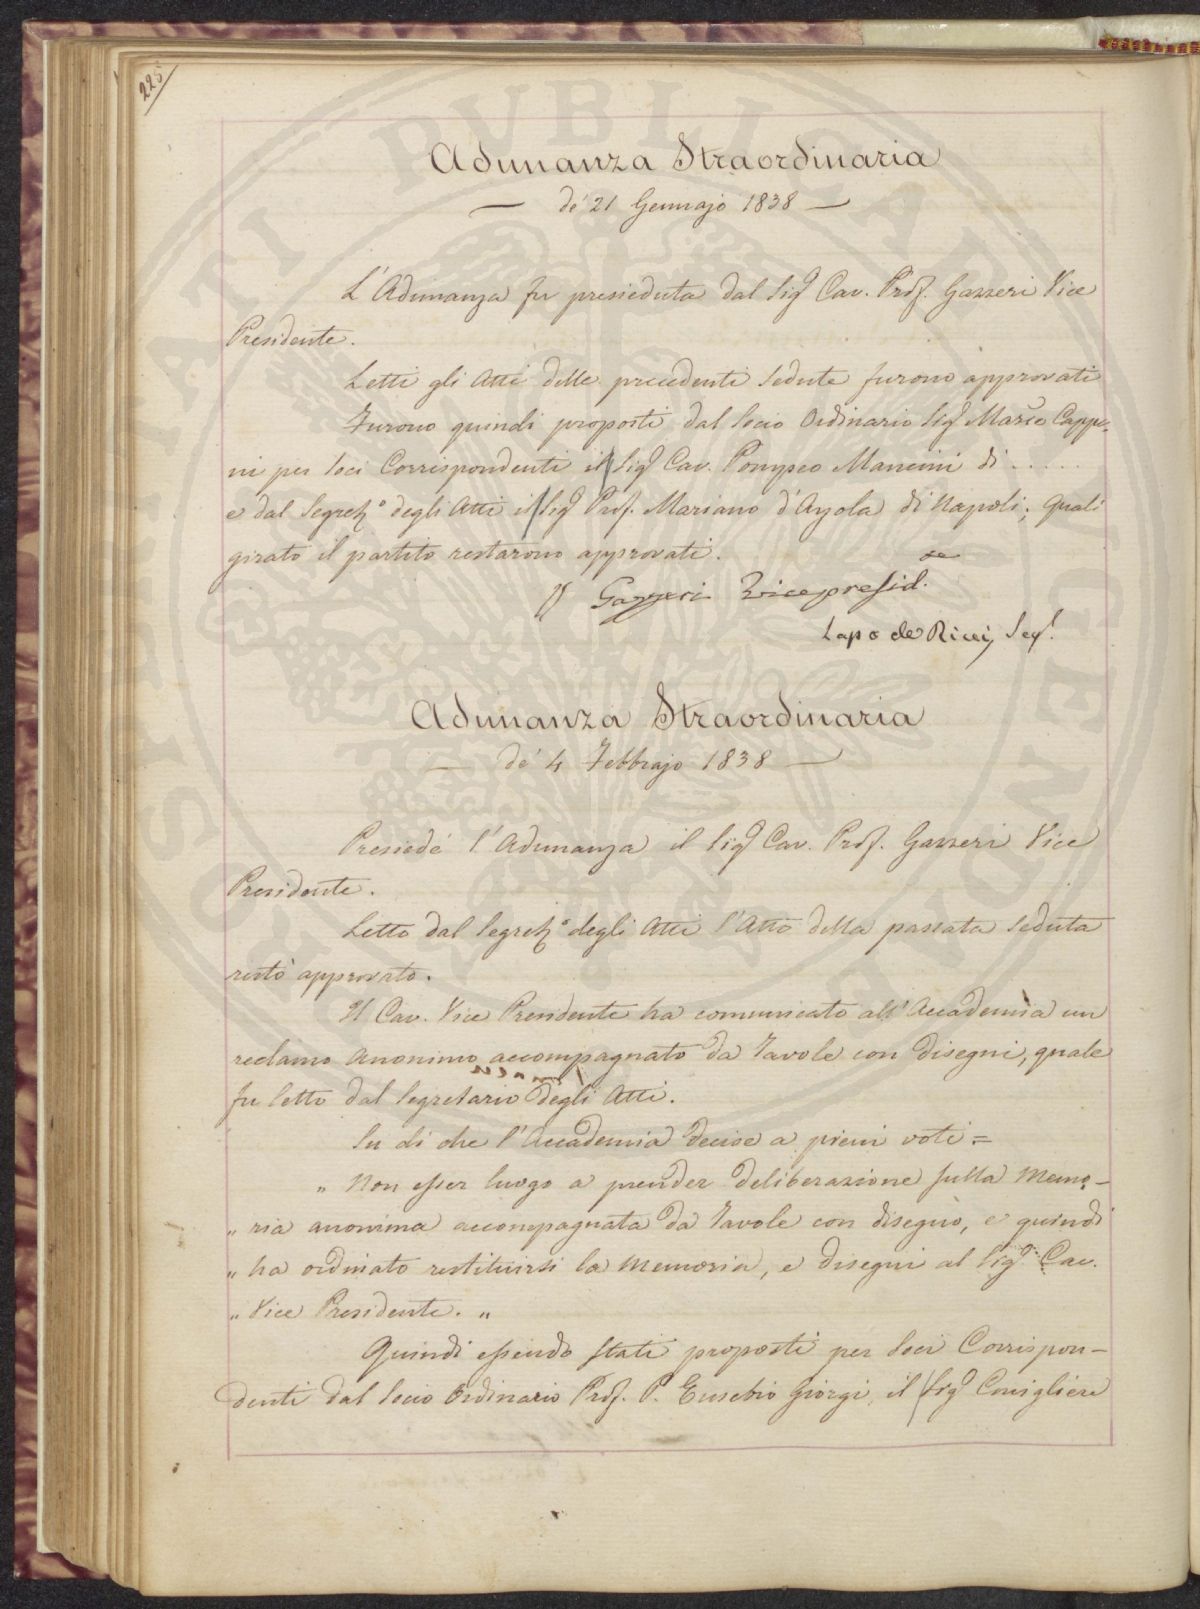 225
Adunanza Straordinaria
— de' 21 Gennajo 1838 —
L'Adunanza fu presieduta dal Sigr Cav. Prof. Gazzeri Vice
Presidente.
Letti gli Atti delle precedenti Sedute furono approvati
Furono quindi proposti dal Socio Ordinario Sigr Marse Cappo-
ni per Soci Corrispondenti il Sigr Cav. Pompeo Mancini di .....
e dal Segreto degli Atti il Sigr Prof. Mariano d'Ayola di Napoli; quali
girato il partito restarono approvati.
Gazzeri Vicepresid.te
Lapo de Ricci Seg.
Adunanza Straordinaria
— de' 4 Febbrajo 1838 —
Presiedé l'Adunanza il Sigr Cav. Prof. Gazzeri Vice
Presidente.
Letto dal Segreto degli Atti l'Atto della passata Seduta
restò approvato.
Il Cav. Vice Presidente ha comunicato all'Accademia un
reclamo Anonimo accompagnato da Tavole con disegni, quale
fu letto dal Segretario degli Atti.
Su di che l'Accademia decise a pieni voti =
„ Non esser luogo a prender deliberazione sulla Memo-
„ ria anonima accompagnata da Tavole con disegno, e quindi
„ ha ordinato restituirsi la Memoria, e disegni al Sigr Cav.
„ Vice Presidente. „
Quindi essendo stati proposti per Soci Corrispon-
denti dal Socio Ordinario Prof. P. Eusebio Giorgi, il Sigr Consigliere
PUBLICAE